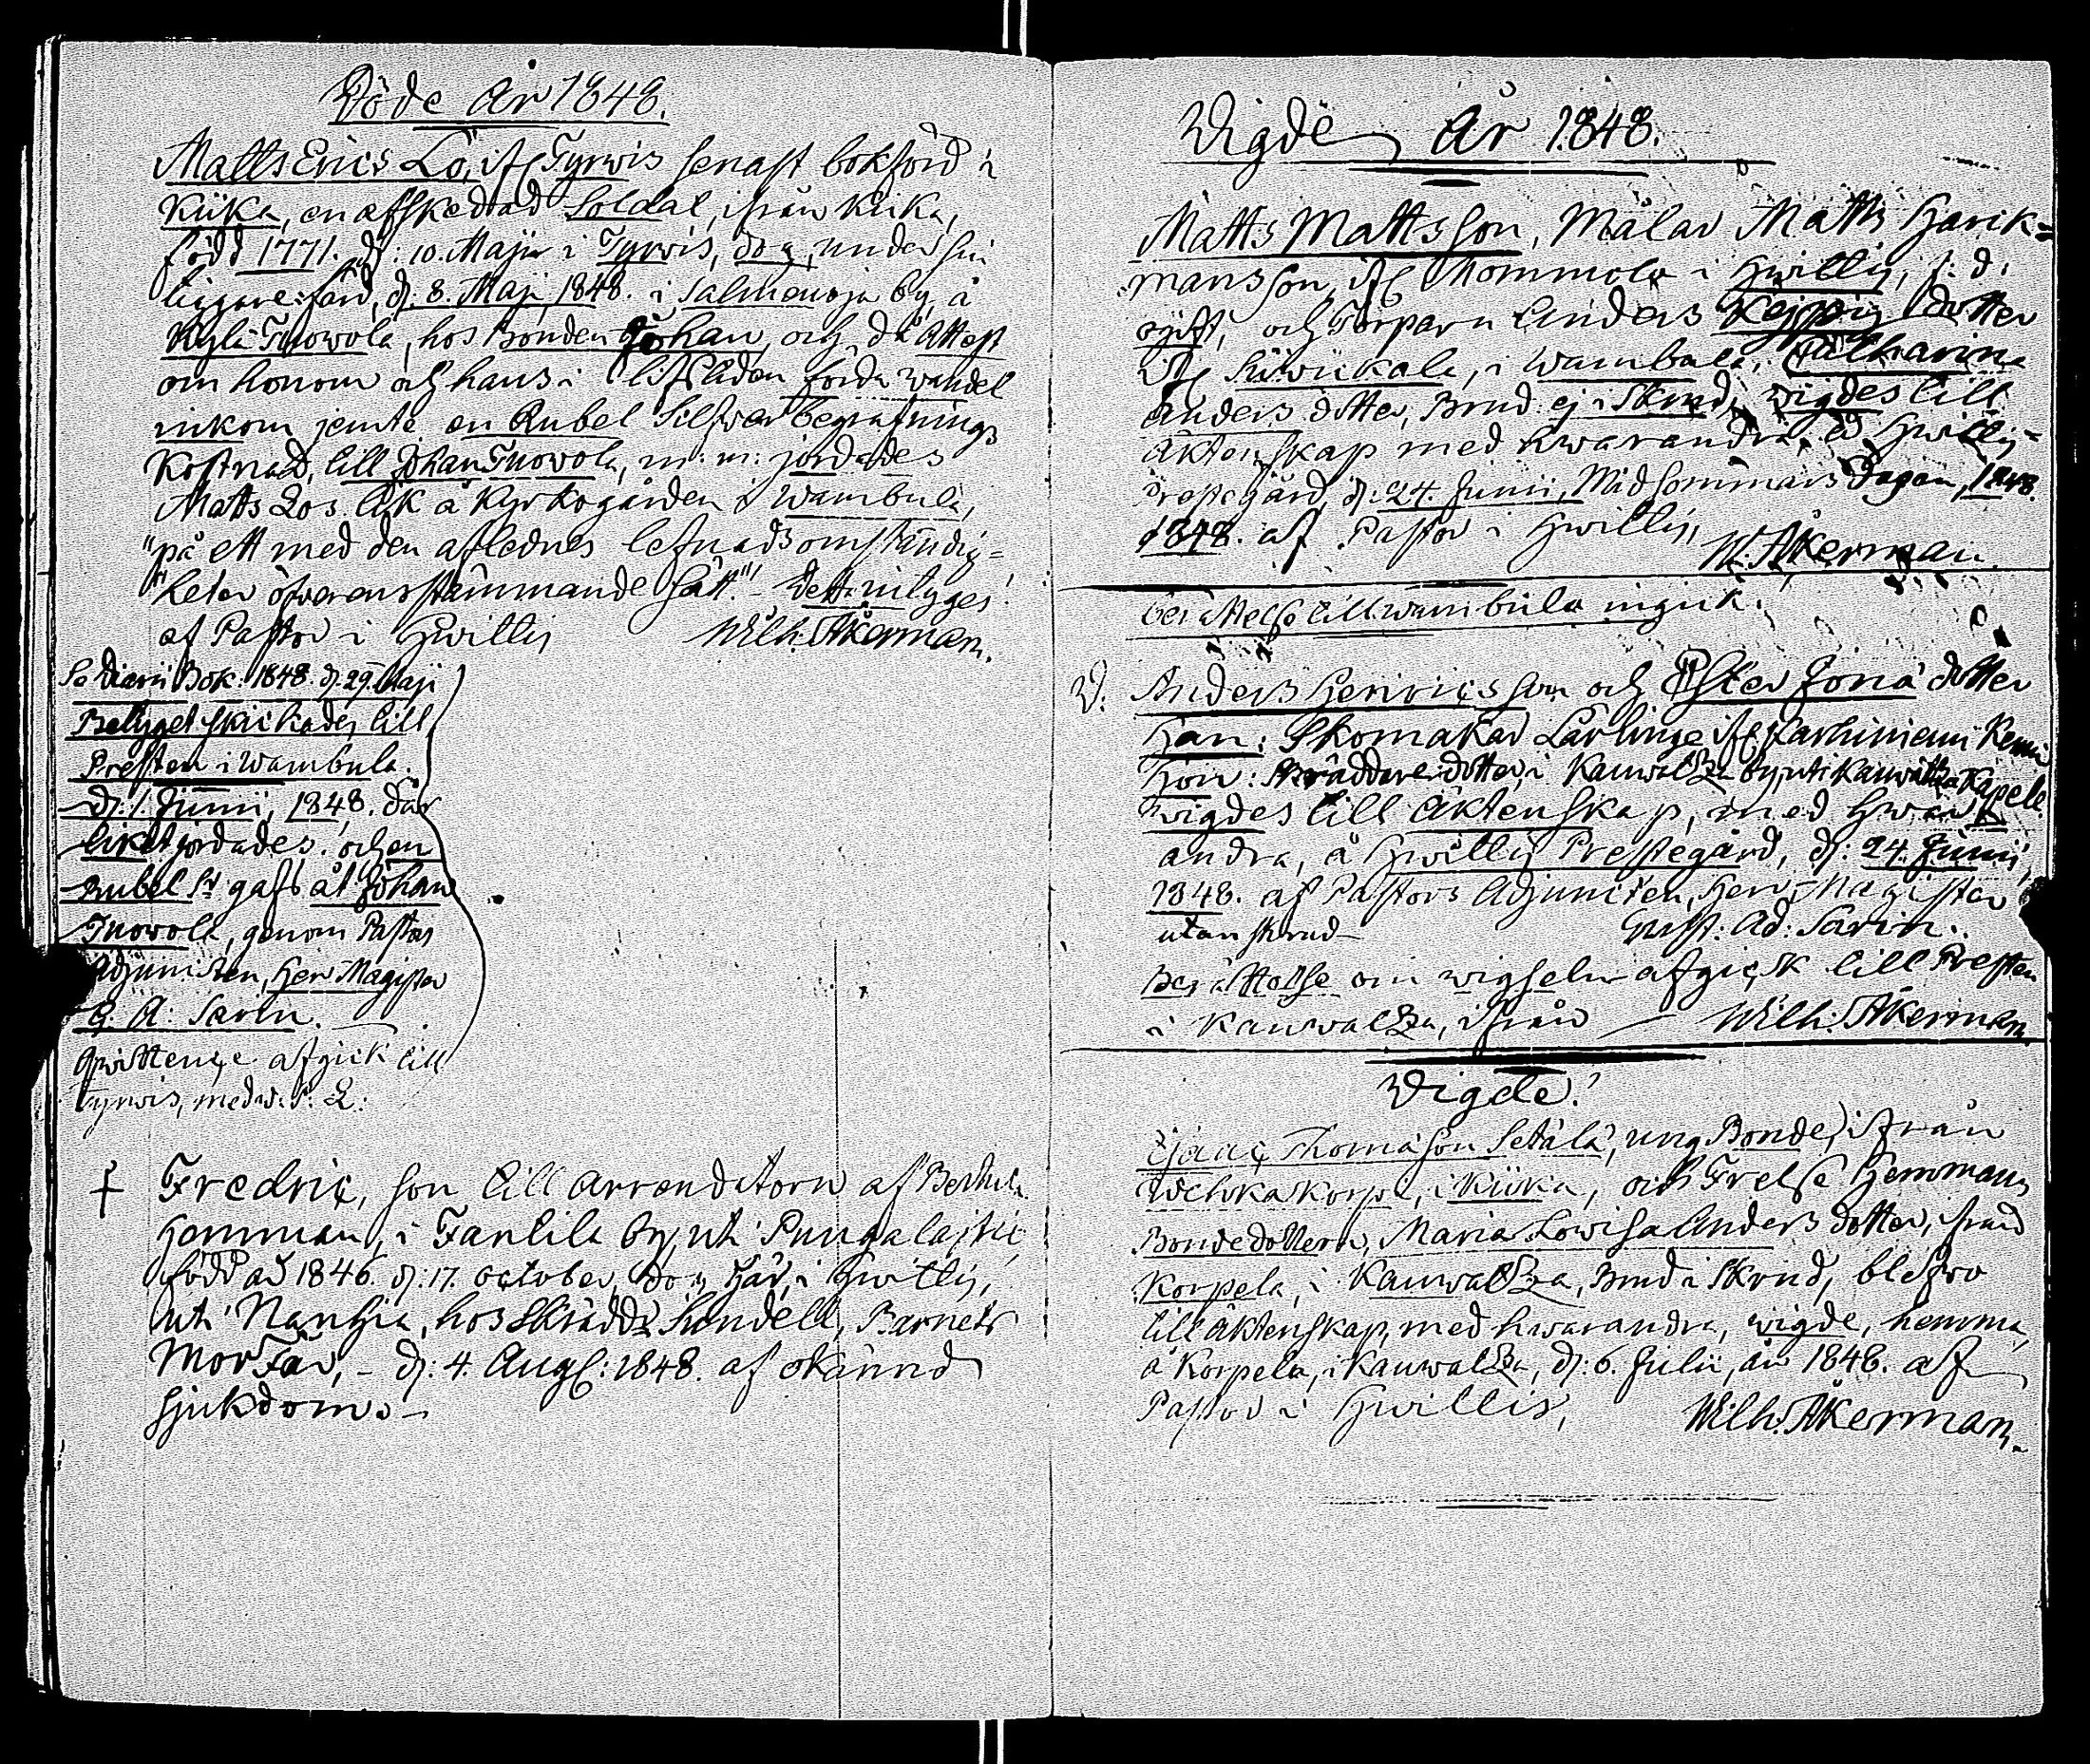 Döde År 1848.
Matts Erics Lö, ifr. Tyrwis senast bokförd i
Kiika, en afskedad Soldat, ifrån Kiika,
född 1771. d: 10. Maji i Tyrwis, dog, under sin
tiggare-färd, d. 8. Maji, 1848. i Salmenoja by, å
Kylä Inowola, hos Bonden Johan, och då Attest
om honom och hans i lifstiden förda wandel
inkom jemte en Rubel Silfwer begrafnings
Kostnad, till Johan Inowola, m: m: jordades
Matts Lös. lik å Kyrkogården i Wambula,
"på ett med den aflednes lefnadsomständig=
"heter öfverensstämmande sätt." - Detta intygas!
af Pastor i Hwittis Wilh. Åkerman.
Se Diarii Bok: 1848. d. 29. Maji
Betyget skickades till
Presten i Wambula.
d: 1. Junii, 1848. där
liket jordades. och en
Rubel Sr gafs åt Johan
Inowola, genom Pastors
Adjuncten, Herr Magister
G. A: Sarin.
Qwittence afgick till
Tyrwis, med
† Fredric, son till arrendatorn af
Hemman, i Fanlila by, uti Pungalaitio
född ad 1846. d: 17. october, dog här, i Hwittis,
uti Nanhia, hos Skrädd: Sundell, Barnets
MorFar, - d: 4. Aug: 1848. af okänd
sjukdom. -
Vigde År 1848.
Matts Mattsson, Målar Matts Henrik=
mansson, ifr Mommola i Hwittis, f: d:
och Torparn Anders Keippis dotter
ifr Säwiikala, i Wambula, Catharina
Anders dotter, Brud ej i Skrud, wigdes till
Äktenskap med hwarandra, å Hwittis=
Prestegård, d: 24. Junii, Midsommars Dagen, 1848.
1848. af Pastor i Hwittis,
W. Åkerman.
berättelse till Wambula ingick.
V. Anders Henricsson och Ester Jona dotter
Han: Skomakar Lärling ifr Karhiniemi
Hon: Skräddare dotter, i Kauwatza by, uti Kauwatza Kapell.
wigdes till äktenskap, med hwar
andra, å Hwittis Prestegård, d: 24. Junii,
1848. af Pastors Adjuncten, Herr Magister
utan skrud - Gust: Ad: Sarin.
Berättelse om wigseln afgick till Presten
i Kauwatza, ifrån — Wilh: Åkerman.
Vigde!
Isaac Thomasson Setälä, ung Bonde, ifrån
Wehkakorpi, i Kiika, och Frelse Hemmans
Bondedottern, Maria Lowisa Anders dotter, ifrån
Korpela, i Kauwatza, Brud i Skrud, blefwo
till äktenskap, med hwarandra, wigde, hemma,
å Korpela, i Kauwatza, d: 6. Julii, år 1848. af
Pastor i Hwittis, Wilh: Åkerman.